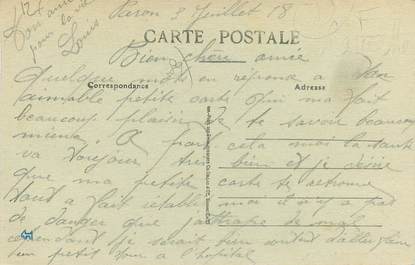 Ton amie
pour la vie
Louis
Paron 3 Juillet 18
CARTE POSTALE
Bien chère amie
Quelque mots en reponse a ton
Correspondance
Adresse
aimable petite carte qui ma fait
beaucoup plaisir de te savoir beaucoup
mieux. A part cela moi la santé
va toujours très bien et je désire
que ma petite carte te retrouve
tout a fait rétablie moi il n'y a pas
de danger que j'attrape de mal
cependant je serait bien content d'aller faire
un petit tour a l'hopital